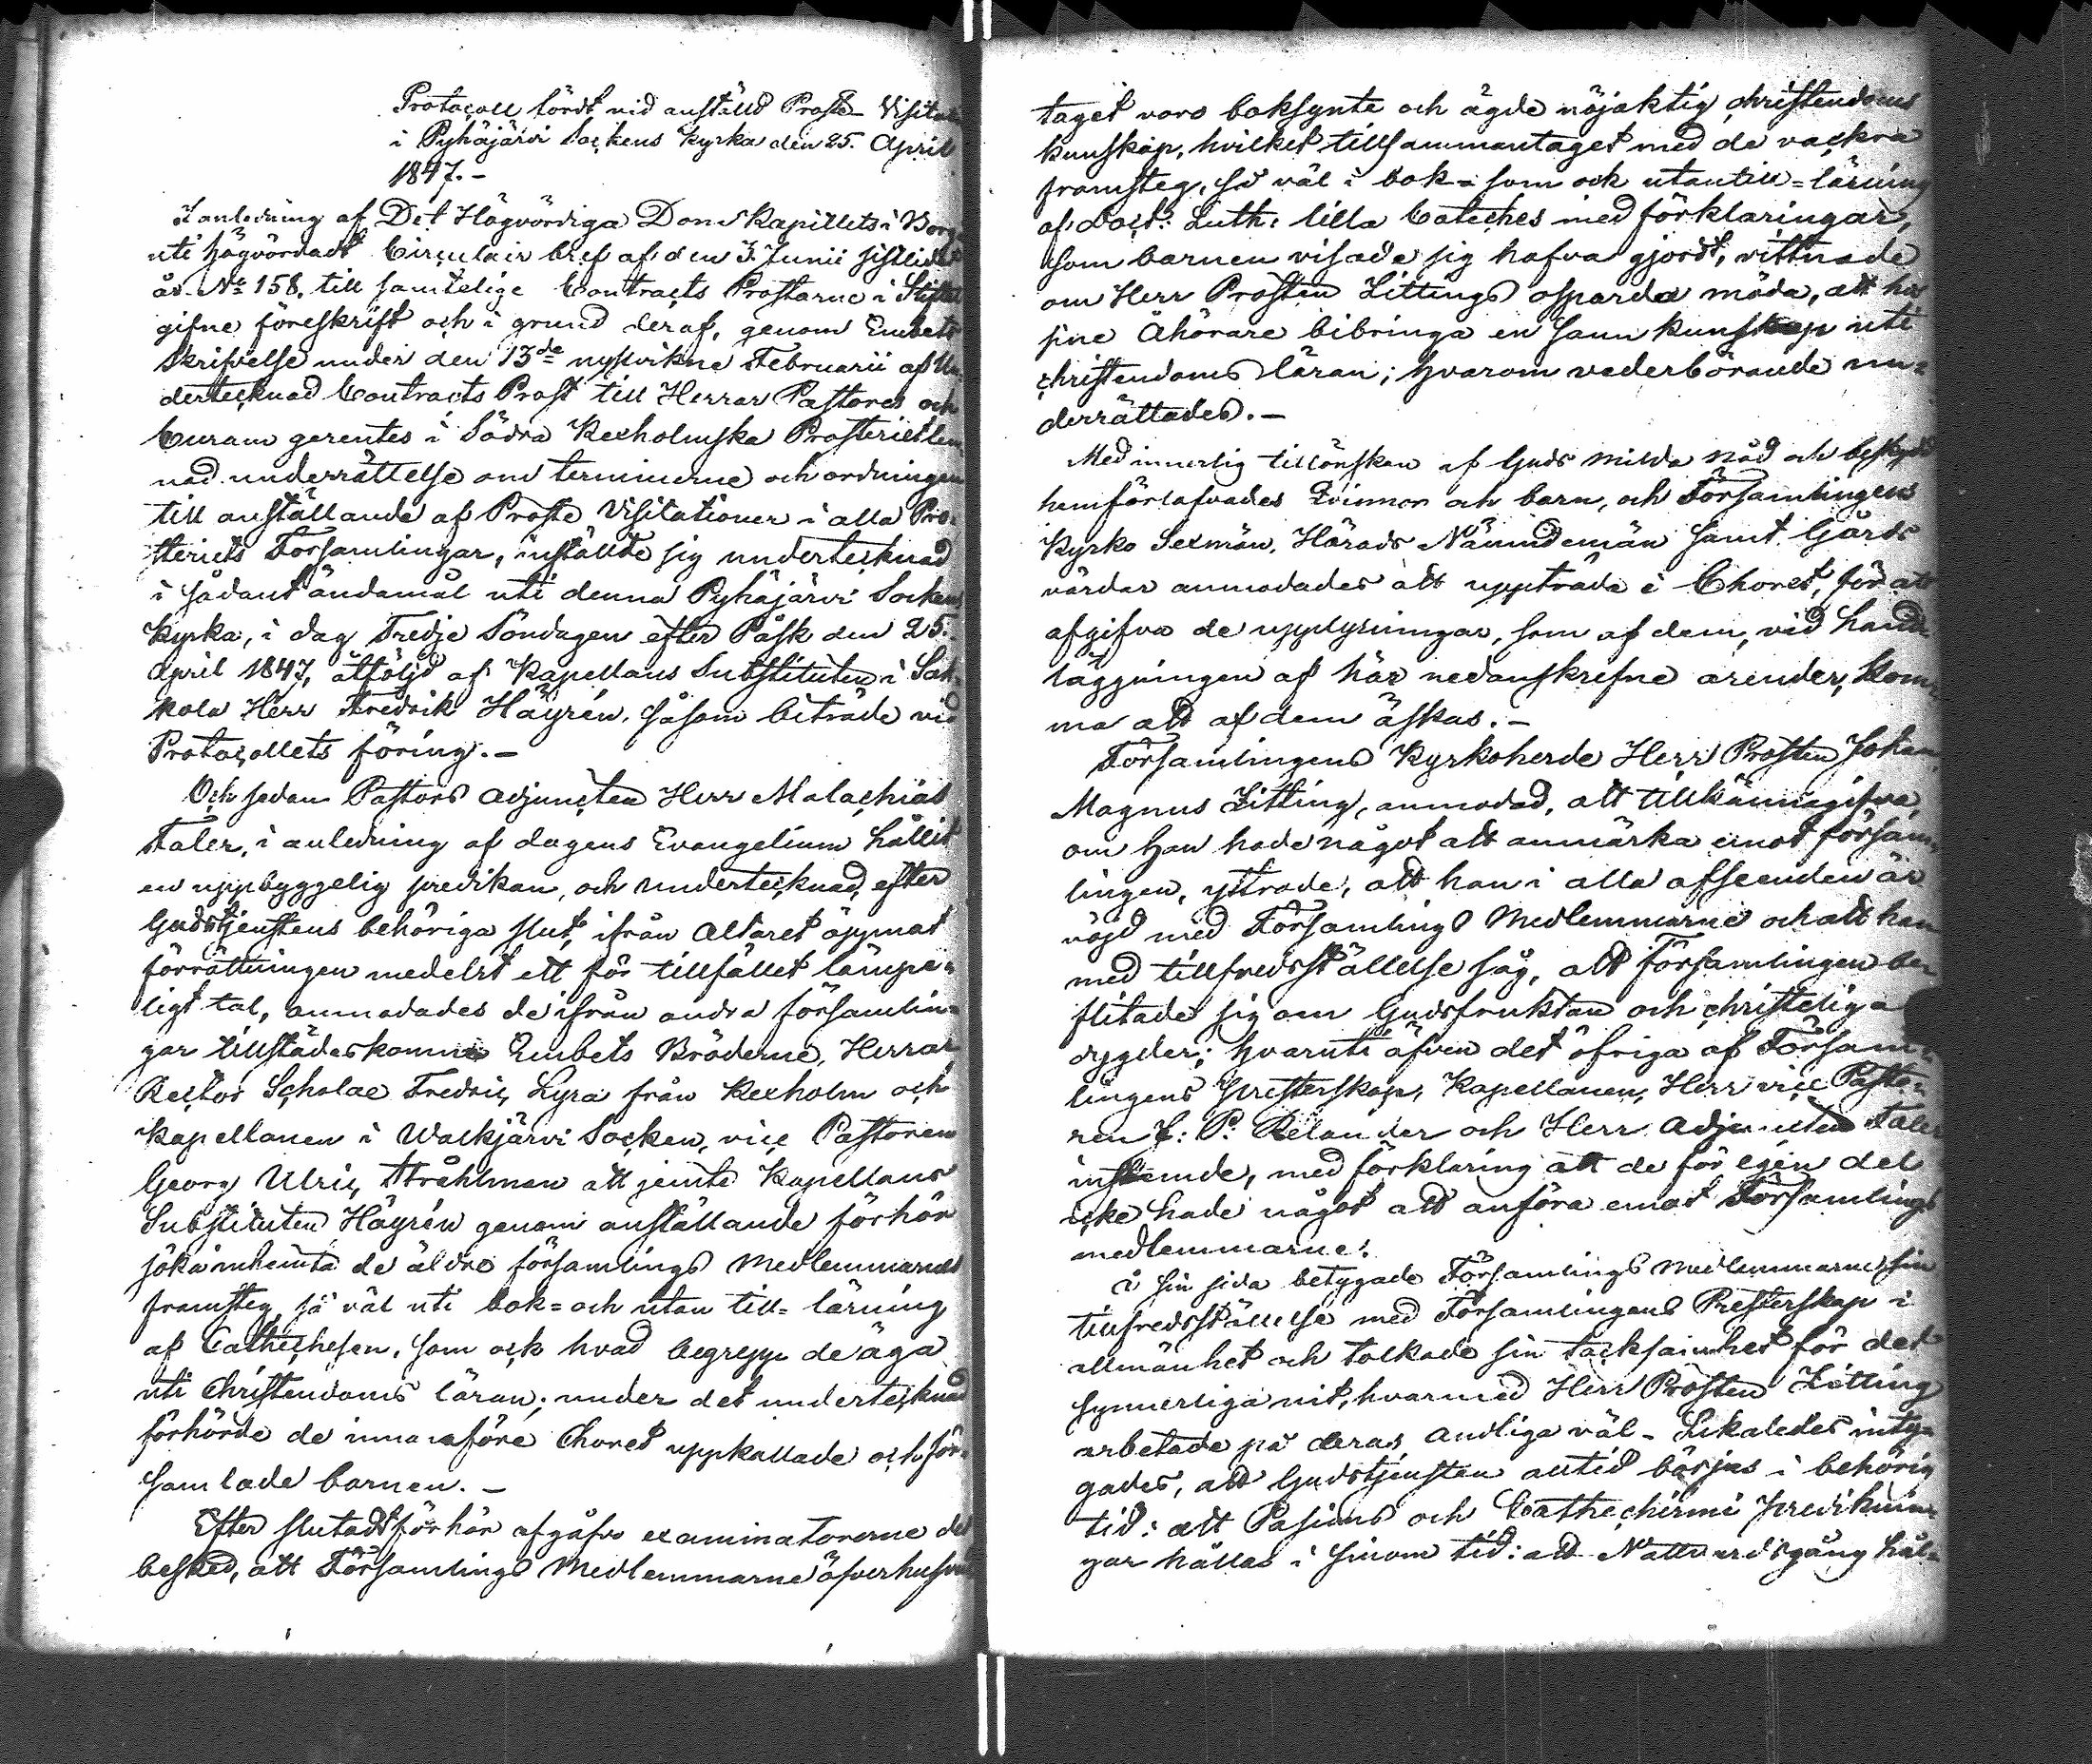 Protocoll fördt vid anställd Proste- Visitat
i Pyhäjärvi Sockens Kyrka den 25. April
1847.-
I anledning af Det Högvördiga Dom Kapitlets i Borg
uti högvördadt Circulair bref af den 3. Junii sistlidet
år No 158. till samtelige Contracts Prostarne i Stiftet
gifne föreskrift och i grund deraf, genom Embets
skrifvelse under den 13de nystvikne Februarii af Un-
dertecknad Contracts Prost till Herrar Pastores och
Curam gerentes i Södra Kexholmska Prosteriet lem
nad underrättelse om terminerne och ordningen
till anställande af Proste Visitationer i alla Pro-
steriets Församlingar, inställde sig undertecknad
i sådant ändamål uti denna Pyhäjärvi Sockens
Kyrka, i dag Tredje Söndagen efter Påsk den 25.
April 1847, åtföljd af Kapellans Substituten i Sak-
kola Herr Fredrik Häyrén, såsom biträde vid
Protocollets föring.-
Och sedan Pastors Adjuncten Herr Malachias
Faler, i anledning af dagens Evangelium hållit
en uppbyggelig predikan, och undertecknad, efter
Gudstjenstens behöriga slut, ifrån Altaret öppnat
förrättningen medelst ett för tillfället lämpe-
ligt tal, anmodades de ifrån andra församlin-
gar tillstädeskomne Embets Bröderne, Herrar
Rector Scholae Fredric Lyra från Kexholm och
Kapellanen i Walkjärvi Socken, vice Pastoren
Georg Ulric Stråhlman att jemte Kapellans
Substituten Häyrén genom anställande förhör
söka inhemta de äldre församlings Medlemmarnes
framsteg så väl uti bok= och utan till= läsning
af Cathechesen, som ock hvad begrepp de äga
uti Christendoms läran; under det undertecknad
förhörde de innanföre Choret uppkallade och för-
samlade barnen.-
Efter slutadt förhör afgåfvo examinatorerne det
besked, att Församlings Medlemmarne öfverhufvud
taget voro boksynte och ägde nöjaktig christendoms
kunskap, hvilket tillsammantaget med de vackra
framsteg, så väl i bok= som ock utantill=läsning
af Doct: Luth: lilla Cateches med förklaringar,
som barnen visade sig hafva gjordt, vittnade
om Herr Prosten Zittings osparda möda, att hos
sine Åhörare bibringa en sann kunskap uti
christendoms läran; hvarom vederbörande un=
derrättades.-
Med innerlig tillönskan af Guds milda nåd och beskydd
hemförlofvades Qvinnor och barn, och Församlingens
Kyrko Sexmän, Härads Nämndemän samt Gårds
värdar anmodades att uppträda i Choret, för att
afgifva de upplysningar, som af dem, vid hand-
läggningen af här nedanskrefne ärender, kom-
ma att af dem äskas.-
Församlingens Kyrkoherde Herr Prosten Johan
Magnus Zitting, anmodad, att tillkännagifva
om Han hade något att anmärka emot försam-
lingen, yttrade, att han i alla afseenden är
nöjd med Församlings Medlemmarne och att han
med tillfredsställelse såg, att Församlingen be-
flitade sig om Gudsfruktan och christeliga
dygder; hvaruti äfven det öfriga af Försam-
lingens Presterskap, Kapellanen, Herr vice Pasto-
ren J: P: Relander och Herr Adjuncten Faler
instemde, med förklaring att de för egen del
icke hade något att anföra emot Församlings
medlemmarne.
Å sin sida betygade Församlings Medlemmarne sin
tillfredsställelse med Församlingens Presterskap i
allmänhet och tolkade sin tacksamhet för det
synnerliga nit, hvarmed Herr Prosten Zitting
arbetade på deras andliga väl.- Likaledes inty-
gades, att Gudstjensten alltid börjas i behörig
tid: att Passions och Cathechismi prediknin-
gar hållas i sinom tid: att Nattvardsgång hål-